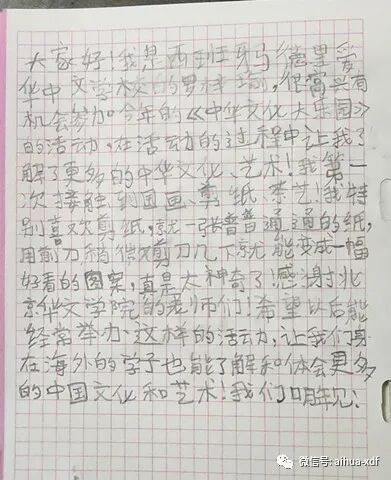 大家好!我是西班牙马德里爱
华中文学校的罗梓瑜,很高兴有
机会参加今年的《中华文化大乐园》
的活动,在活动的过程中让我了
解了更多的中华文化、艺术!我第一
次接触到国画、剪纸、茶艺!我特
别喜欢剪纸,就一张普普通通的纸,
用剪刀稍微剪几下就能变成一幅
好看的图案,真是太神奇了感谢北
京华文学院的老师们!希望以后能
经常举办这样的活动,让我们身
在海外的学子也能了解和体会更多
的中国文化和艺术!我们明年见!
微信号: aihua-xdf